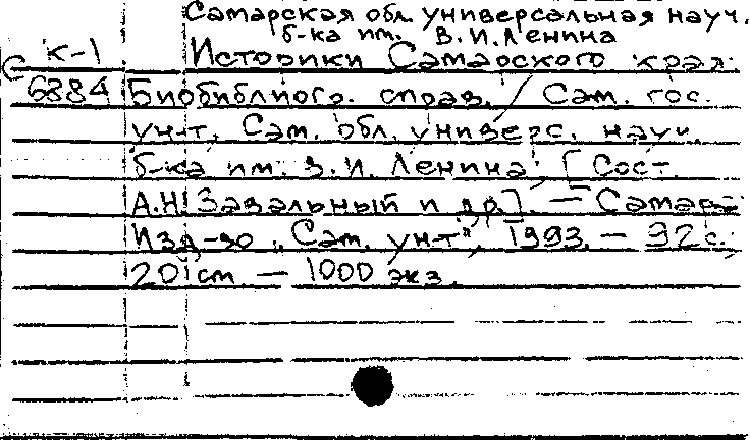 Самарская обл. универсальная науч.
б-ка им. В.И.Ленина
К-1 Историки Самарского края:
С
6384 Биобиблиогр. справ. / Сам. гос.
ун-т, Сам. обл. универс. науч.
б-ка им. В.И. Ленина; [Сост.
А.Н. Завальный и др.]. — Самара:
Изд-во „Сам. ун-т", 1993. — 92 с.;
20 см. — 1000 экз.